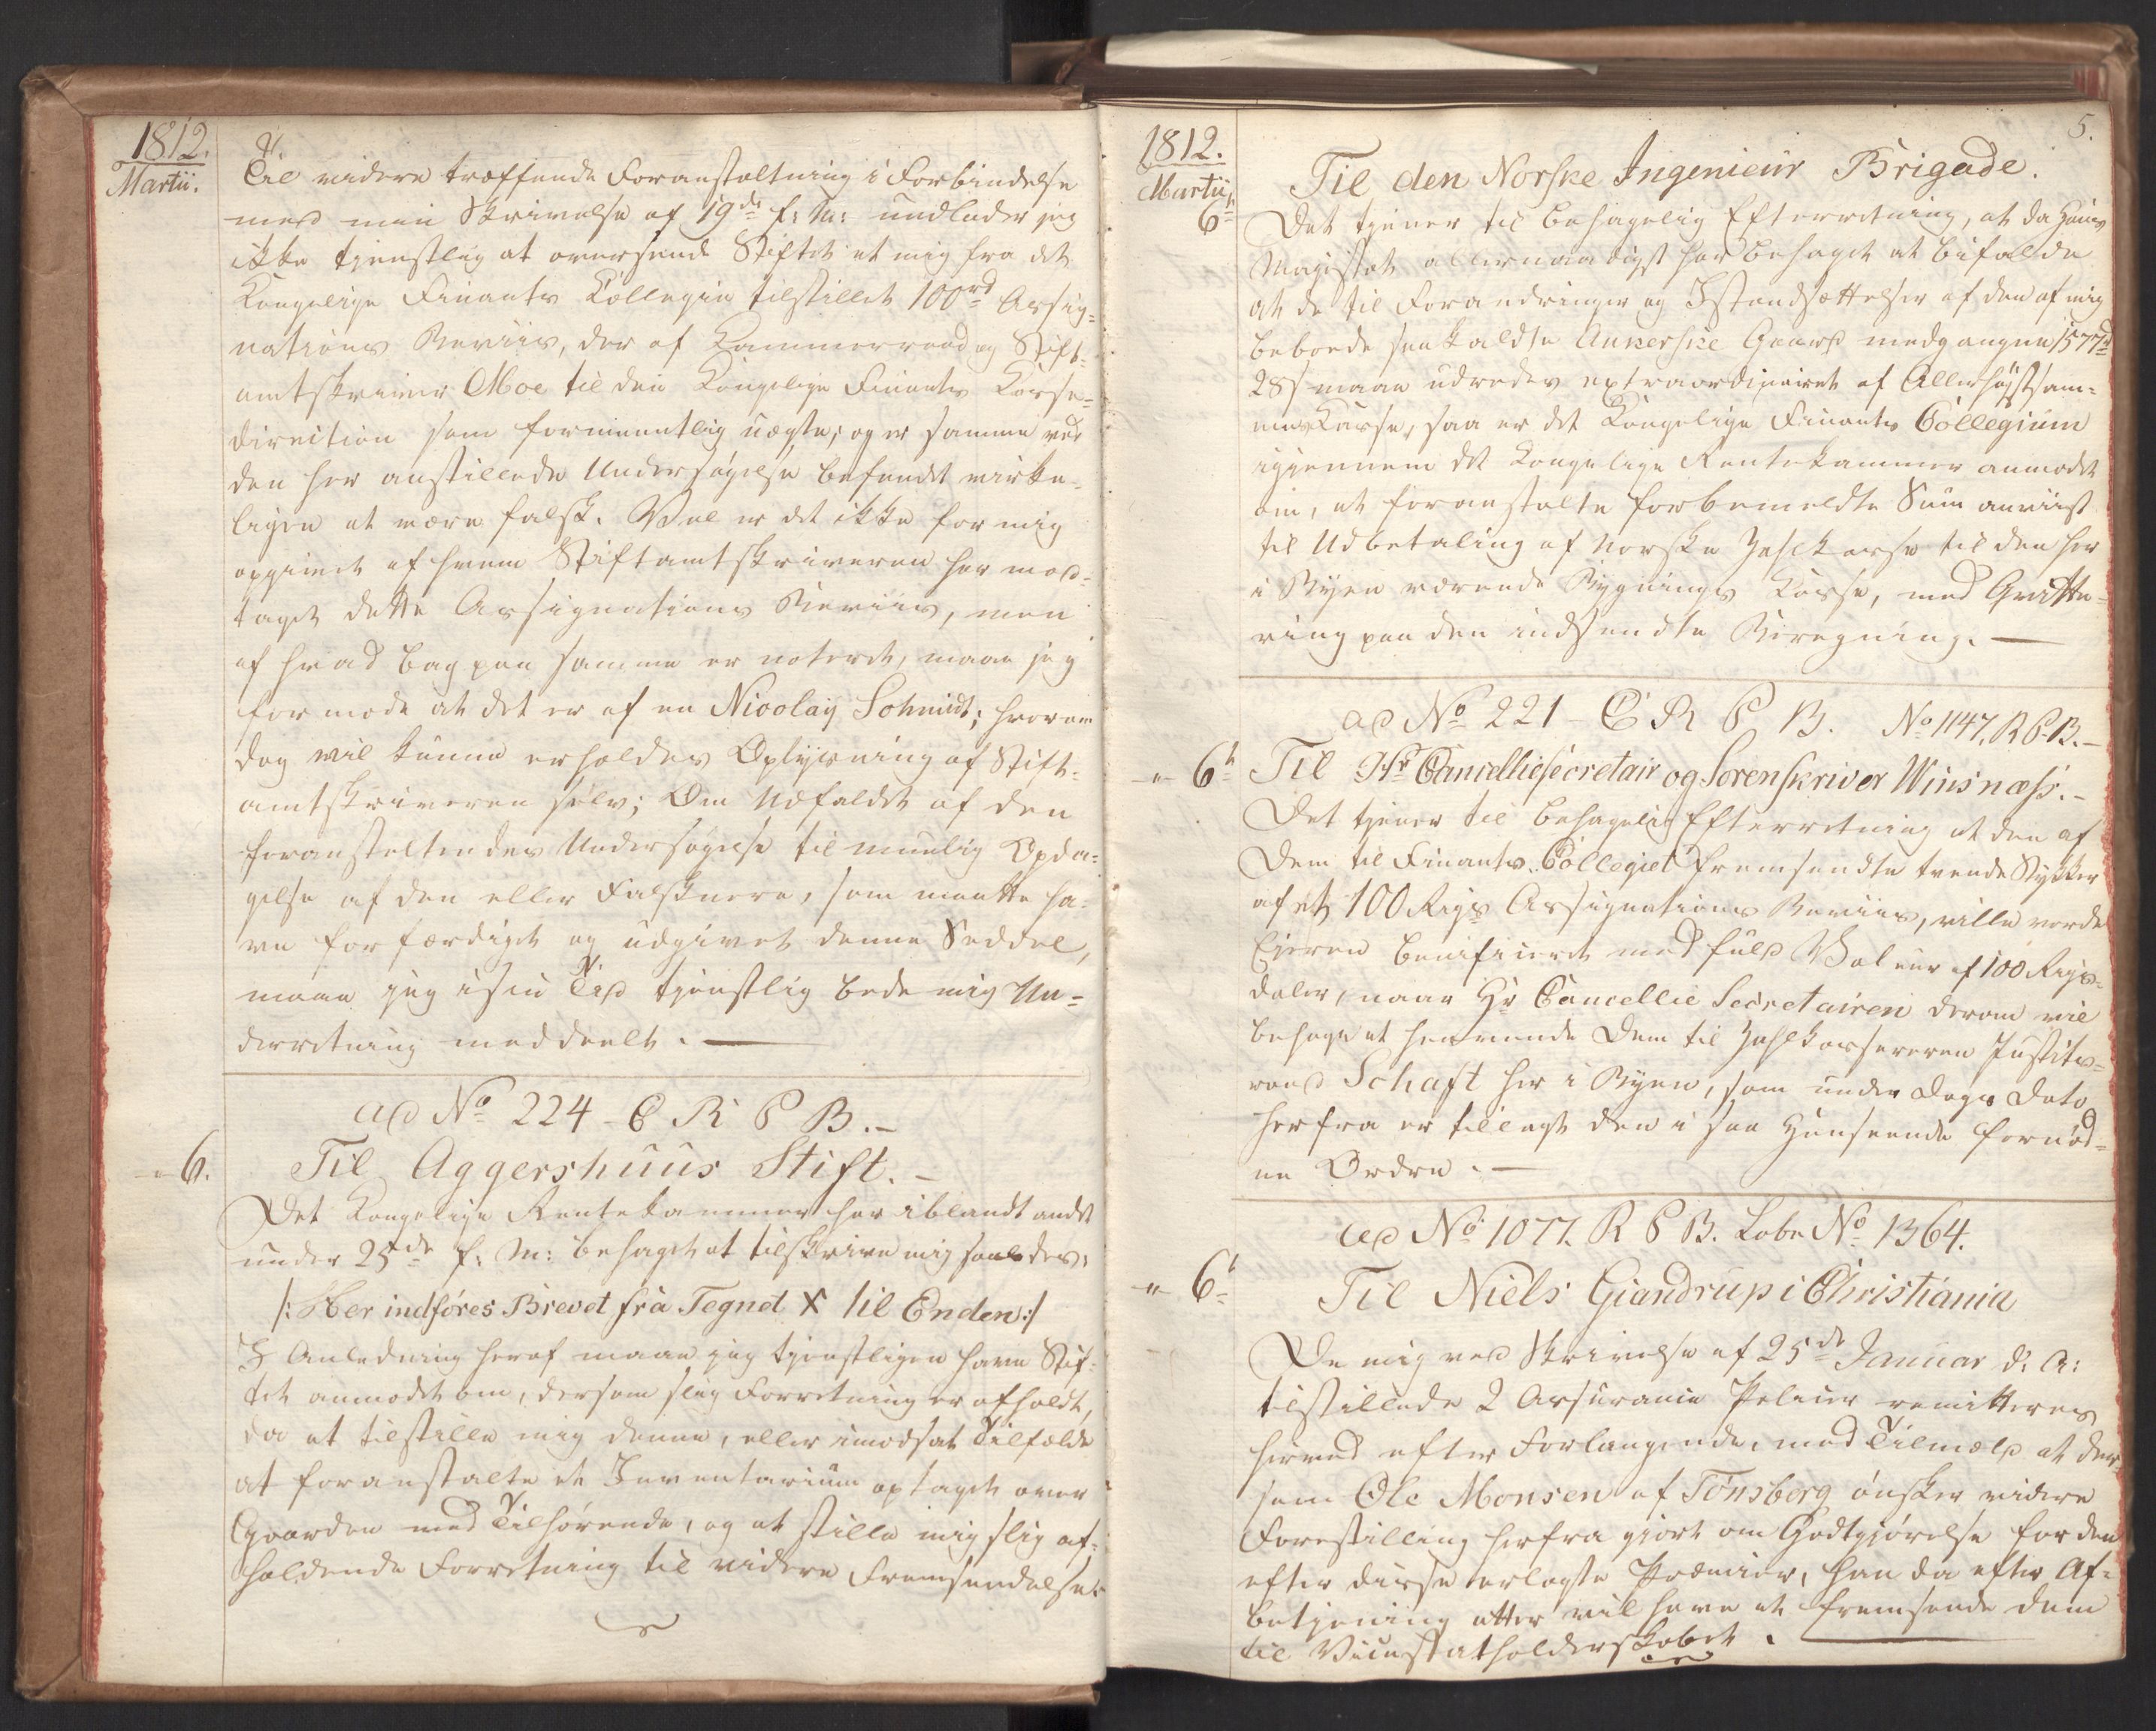 1812.
Martii.
Til videre træffende Foranstaltning i Forbindelse
med min Skrivelse af 19de f: M: undlader jeg
ikke tjenstlig at oversende Stiftet et mig fra det
Kongelige Finants Collegiu tilstillet 100rd Assig-
nations Beviis, der af Kammerraad og Stift-
amtskriver Moe til den Kongelige Finants Casse-
direction som formeentlig uægte; og er samme ved
den her anstillede Undersøgelse befundet virke-
ligen at være falsk. Vel er det ikke for mig
opgivet af hvem Stiftamtskriveren har mod-
taget dette Assignations Beviis, men
af hvad bag paa samme er noteret, maae jeg
formode at det er af en Nicolay Schmidt; hvorom
dog vil kunne erholdes Oplysning af Stift-
amtskriveren selv; Om Udfaldet af den
foranstaltendes Undersøgelse til muulig Opda-
gelse af den eller Falsknere, som maatte ha-
ve forfærdiget og udgivet denne Seddel,
maae jeg i sin Tid tjenstlig bede mig Un-
derretning meddeelt.
ad No 224 - C R P B.-
6.
Til Aggershuus Stift.-
Det Kongelige Rentekammer har iblandt andet
under 25de f: M: behaget at tilskrive mig saaledes:
/: Her indføres Brevet fra Tegnet X til Enden :/
I Anledning heraf maae jeg tjenstligen have Stif-
tet anmodet om, dersom slig Forretning er afholdt,
da at tilstille mig denne, eller i modsat Tilfælde
at foranstalte et Inventarium optaget over
Gaarden med Tilhørende, og at stille mig slig af-
holdende Forretning til videre Fremsendelse.
5.
1812.
Martii
6te
Til den Norske Ingenieur Brigade.
Det tjener til behagelig Efterretning, at da Hans
Majestæt allernaadigst har behaget at bifalde
at de til Forandringer og Istandsættelser af den af mig
beboede saakaldte Ankerske Gaard medgangne 1577rd
28s maae udredes extraordinairet af Allerhøistsam-
mes Kasse, saa er det Kongelige Finants Collegium
igiennem det Kongelige Rentekammer anmodet
om, at foranstalte forbemeldte Sum anviist
til Udbetaling af Norske Zahlkasse til den her
i Byen værende Bygnings Kasse, mod Qvitte-
ring paa den indsendte Beregning.
ad No 221 - C R P B. No 1147. R P B.-
6te
Til Hr Cancelliesecretair og Sorenskriver Winsnæss.-
Det tjener til behagelig Efterretning at den af
Dem til Finants Collegiet fremsendte tvende Stykker
af et 100 Rigs Assignations Beviis, ville vorde
Eieren benificeret med fuld Valeur af 100 Rigs-
daler, naar Hr Cancellie Secretairen derom vil
behage at henvende Dem til Zahlkassereren Justits-
raad Schaft her i Byen, som under Dags Dato
herfra er tillagt den i saa Henseende fornød-
ne Ordre.-
ad No 1077. R P B. Lobe No 1364.
6te
Til Niels Giandrup i Christiania
De mig ved Skrivelse af 25de Januar d: A:
tilstillede 2 Assurance Policer remitteres
hermed efter Forlangende, med Tilmeld at der-
som Ole Monsen af Tønsberg ønsker videre
Forestilling herfra gjort om Godtgjørelse for den
efter disse erlagte Præmier, han da efter Af-
betjening atter vil have at fremsende dem
til Vicestatholderskabet.